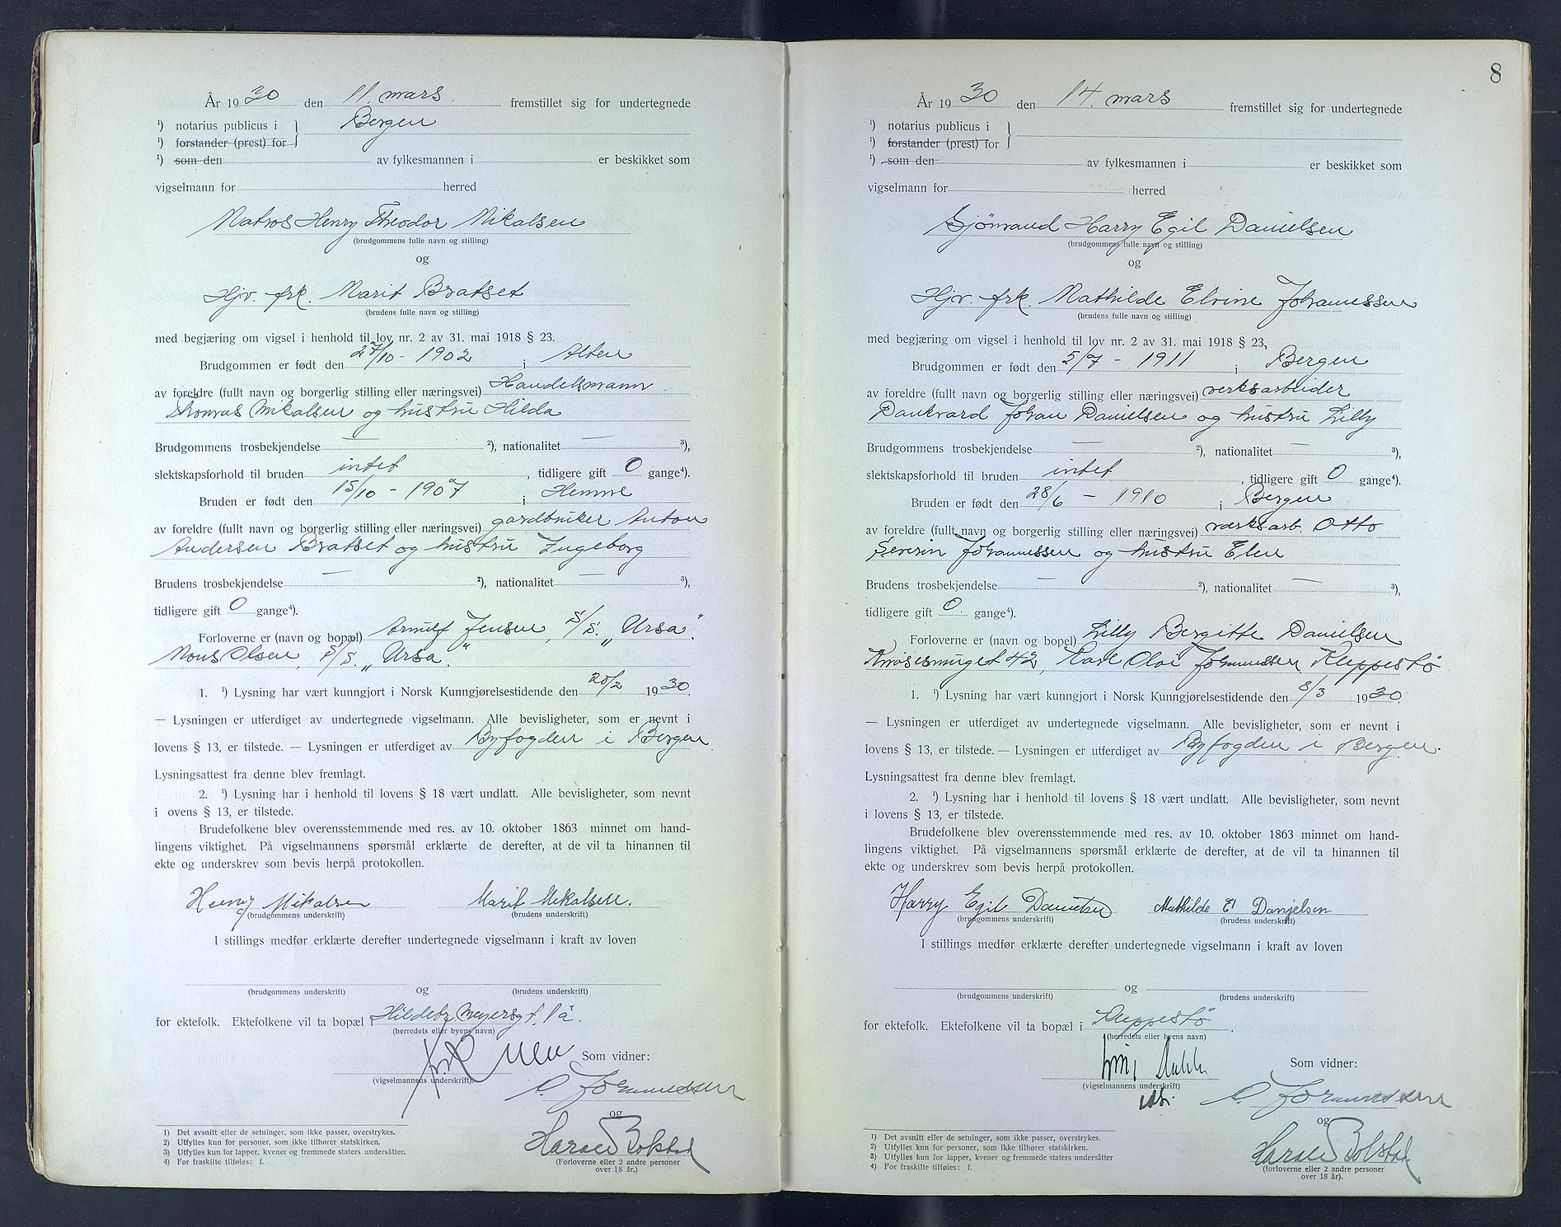 År 1930 den 11. mars. fremstillet sig for undertegnede
¹) notarius publicus i } Bergen
¹) forstander (prest) for
¹) som den av fylkesmannen i er beskikket som
vigselmann for herred
Matros Henry Theodor Mikalsen
(brudgommens fulle navn og stilling)
og
Hjv. frk. Marit Bratset
(brudens fulle navn og stilling)
med begjæring om vigsel i henhold til lov nr. 2 av 31. mai 1918 § 23.
Brudgommen er født den 27/10 - 1902 i Alten
av foreldre (fullt navn og borgerlig stilling eller næringsvei) Handelsmann
Thomas Mikalsen og hustru Hilda
Brudgommens trosbekjendelse — ²), nationalitet — ³),
slektskapsforhold til bruden intet, tidligere gift 0 gange⁴).
Bruden er født den 15/10 - 1907 i Hemne
av foreldre (fullt navn og borgerlig stilling eller næringsvei) gardbruker Anton
Andersen Bratset og hustru Ingeborg
Brudens trosbekjendelse — ²), nationalitet — ³),
tidligere gift 0 gange⁴).
Forloverne er (navn og bopæl) Arnulf Jensen, S/S. „Ursa“.
Mons Olsen, S/S. „Ursa.“
1. ¹) Lysning har vært kunngjort i Norsk Kunngjørelsestidende den 20/2 1930.
— Lysningen er utferdiget av undertegnede vigselmann. Alle bevisligheter, som er nevnt i
lovens § 13, er tilstede. — Lysningen er utferdiget av Byfogden i Bergen.
Lysningsattest fra denne blev fremlagt.
2. ¹) Lysning har i henhold til lovens § 18 vært undlatt. Alle bevisligheter, som nevnt
i ovens § 13, er tilstede.
Brudefolkene blev overensstemmende med res. av 10. oktober 1863 minnet om hand-
lingens viktighet. På vigselmannens spørsmål erklærte de derefter, at de vil ta hinannen til
ekte og underskrev som bevis herpå protokollen.
Henry Mikalsen Marit Mikalsen.
(brudgommens underskrift) (brudens underskrift)
I stillings medfør erklærte derefter undertegnede vigselmann i kraft av loven
og
(brudgommens underskrift) (brudens underskrift)
for ektefolk. Ektefolkene vil ta bopæl i Hildebr. Meyersgt. 1a.
(herredets eller byens navn)
Som vidner:
(vigselmannens underskrift)
O. Johannessen
og
Harald Bolstad
(Forloverne eller 2 andre personer
over 18 år.)
1) Det avsnitt eller de setninger, som ikke passer, overstrykes.
2) Utfylles kun for personer, som ikke tilhører statskirken.
3) Utfylles kun for lapper, kvener og fremmede staters undersåtter.
4) For fraskilte tilføies: f.
8
År 1930 den 14. mars fremstillet sig for undertegnede
¹) notarius publicus i }
¹) forstander (prest) for
¹) som den av fylkesmannen i er beskikket som
vigselmann for herred
Sjömand Harry Egil Danielsen
(brudgommens fulle navn og stilling)
og
Hjv. frk. Mathilde Elvine Johannessen
(brudens fulle navn og stilling)
med begjæring om vigsel i henhold til lov nr. 2 av 31. mai 1918 § 23,
Brudgommen er født den 5/7 - 1911 i Bergen
av foreldre (fullt navn og borgerlig stilling eller næringsvei) verksarbeider
Dankvard Johan Danielsen og hustru Lilly
Brudgommens trosbekjendelse — ²), nationalitet — ³),
slektskapsforhold til bruden intet, tidligere gift 0 gange⁴).
Bruden er født den 28/6 - 1910 i Bergen
av foreldre (fullt navn og borgerlig stilling eller næringsvei) verksarb. Otto
Severin Johannessen og hustru Elen
Brudens trosbekjendelse — ²), nationalitet — ³),
tidligere gift 0. gange⁴).
Forloverne er (navn og bopel) Lilly Bergitte Danielsen
42, Karl Olai Johannessen Kleppestö
1. ¹) Lysning har vært kunngjort i Norsk Kunngjørelsestidende den 8/3 1930.
— Lysningen er utferdiget av undertegnede vigselmann. Alle bevisligheter, som er nevnt i
lovens § 13, er tilstede. — Lysningen er utferdiget av Byfogden i Bergen.
Lysningsattest fra denne blev fremlagt.
2. ¹) Lysning har i henhold til lovens § 18 vært undlatt. Alle bevisligheter, som nevnt
i lovens § 13, er tilstede.
Brudefolkene blev overensstemmende med res. av 10. oktober 1863 minnet om hand-
lingens viktighet. På vigselmannens spørsmål erklærte de derefter, at de vil ta hinannen til
ekte og underskrev som bevis herpå protokollen.
Harry Egil Danielsen Mathilde El Danjelsen
(brudgommens underskrift) (brudens underskrift)
I stillings medfør erklærte derefter undertegnede vigselmann i kraft av loven
og
(brudgommens underskrift) (brudens underskrift)
for ektefolk. Ektefolkene vil ta bopæl i Kleppestö.
(herredets eller byens navn)
Som vidner:
(vigselmannens underskrift)
O. Johannessen
og
Harald Bolstad
(forloverne eller 2 andre personer
over 18 år).
1) Det avsnitt eller de setninger, som ikke passer, overstrykes.
2) Utfylles kun for personer, som ikke tilhører statskirken.
3) Utfylles kun for lapper, kvener og fremmede staters undersåtter
4) For fraskilte tilføies: f.